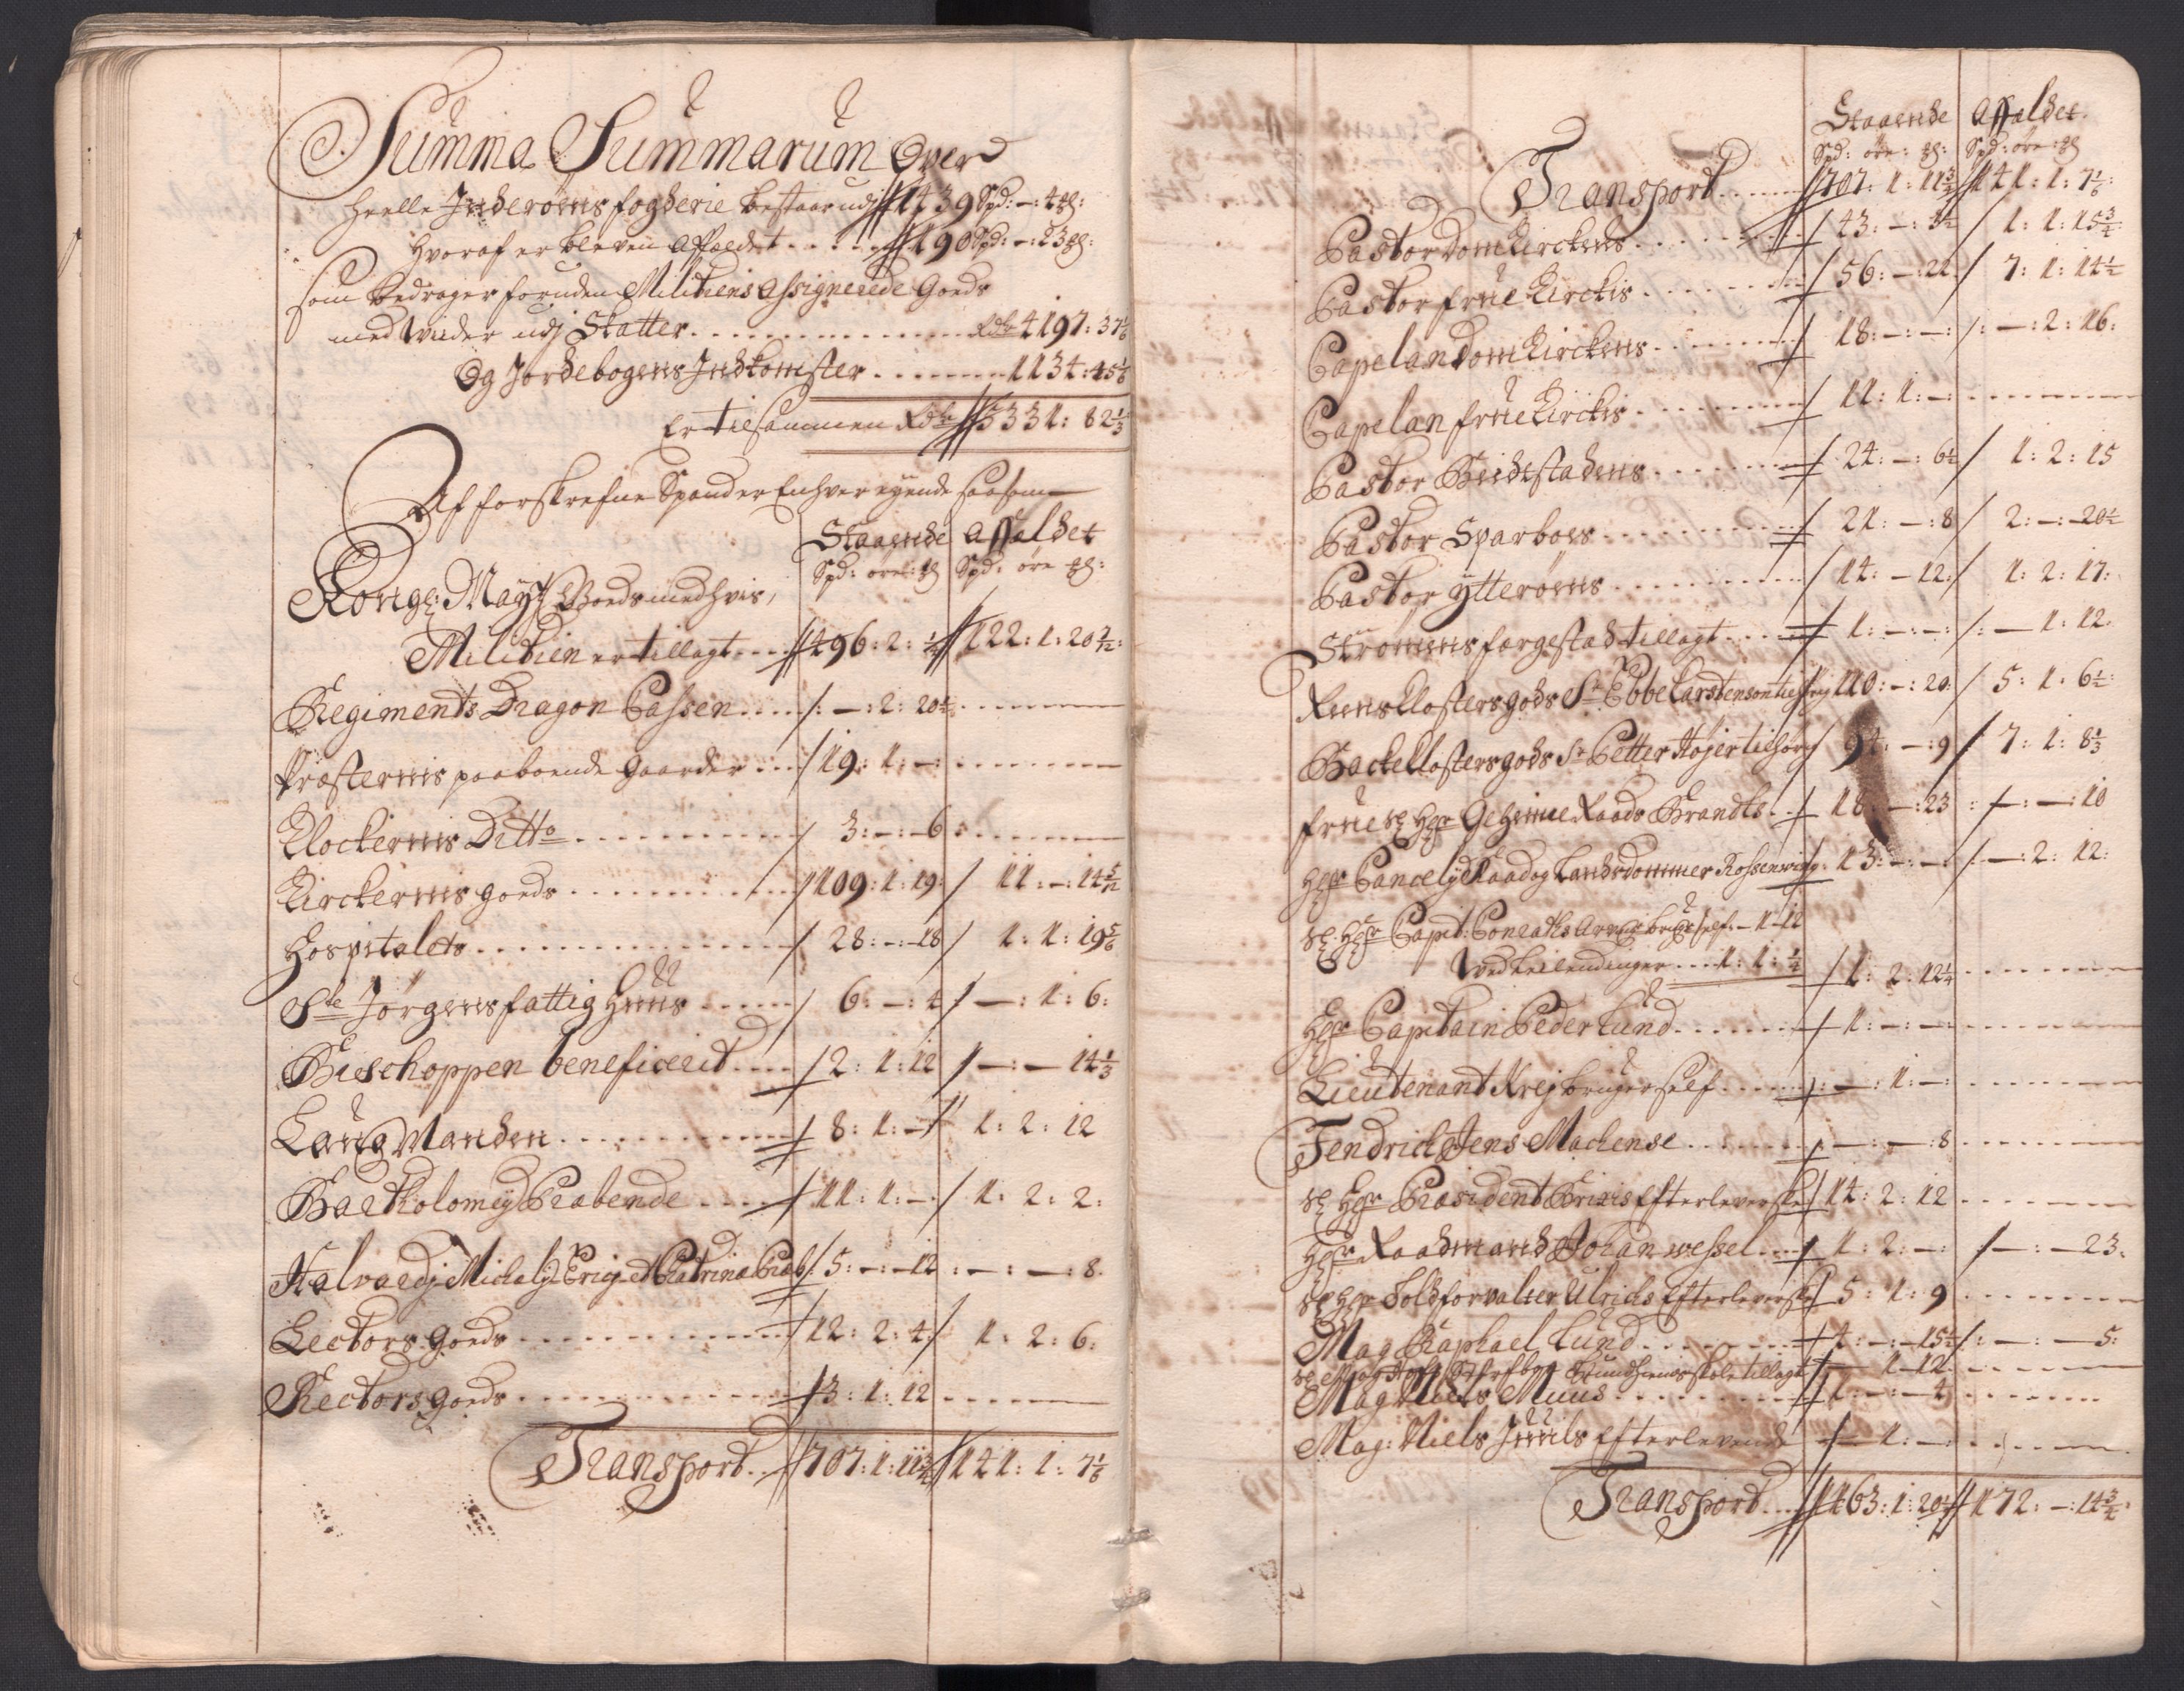 Summa Summarum Over
Heelle Inderøens fogderie bestaar udj 1439 Spd: –: 4 ꝷ:
Hvoraf er bleven affældet . . . . 190 Spd: –: 23 ꝷ:
som bedrager foruden Militiens Assignerede Goeds
med Videre udj Skatter . . . . . Rdr 4197: 37 1/6
Og Jordebogens Indkomster . . . . 1134: 45 1/6
Er tilsammen Rdr 5331: 82 1/3
Af forskrefne Spander Enhver eyende saasom
Staaende Affaldet
Spd: øre: ꝷ Spd: øre ꝷ:
Kongl: Mayts Goeds med hvis
Militien er tillagt . . . 496: 2: 122: 1: 20
Regiments Dragon Cassen . . . –: 2: 20
Præsternis paaboende Gaarder . . . 19: 1: –:
Clockernis Ditto . . . 3: –: 6
Kirckernis goeds . . . 109: 1: 19: 11: –: 14
Hospitalets . . . 28: –: 18 1: 1: 19 5/6
Ste Jørgens fattig Huus . . . 6: –: 4 –: 1: 6:
Bieschoppen beneficerit . . . 2: 1: 12 –: – 14 1/3
Laug Manden . . . 8: 1: – 1: 2: 12
Bartholomej Præbende . . . 11: 1: – 1: 2: 2:
Halvardj Michaelj Ericj et Chatrina Præb: 5: –: 12 : –: –: 8.
Lectors goeds . . . 12: 2: 4 1: 2: 6:
Rectors goeds . . . 3: 1: 12
Transport . . 707: 1: 11 3/4 141: 1: 7 1/6
Staaende Affaldet.
Spd: øre: ꝷ: Spd: øre: ꝷ
Transport . . . 707: 1: 11 3/4 141: 1: 7 1/6:
Pastor Dom Kirckens . . . 43: –: 3 1/2 1: 1: 15 3/4
Pastor frue Kirckis . . . 56: –: 22 7: 1: 14 1/2
Capelan Dom Kirckens . . . 18: –: –: –: 2: 16:
Capelan frue Kirckis . . . 11: 1: –
Pastor Beidestadens . . . 24: –: 6 1/2 1: 2: 15
Pastor Sparboes . . . 21: –: 8 2: –: 20 1/2
Pastor ytterøens . . . 14: – 12: 1: 2: 17:
Strømmens fergestad tillagt . . . 1: –: –: – 1: 12:
Reens Closters gods Sr Ebbe Carstensen tilhørig 110: –: 20: 5: 1: 6 1/2:
Backe Closters gods Sr Petter Højer tilhørig 94: –: 9 7: 1: 8 1/3
frue Sl: Hr Geheimee Raads Brandts . . 18: –: 23 –: –: 10
Hr Cancelij Raad og Landsdommer Rossenvinge 13: –: – –: 2: 12:
Sl: Hr Capit: Conraths Arvinger bruger self: – 1 12
Ved Leilendinger . . . 1: 1: 1/4 1: 2: 12 1/4
Hr Capitain Peder Lund . . . 1: –: –:
Lieutenant Krej bruger self . . . –: 1: –:
Fendrich Jens Machense . . . –: –: 8
Sl: Hr Præsident Brixis Efterleverske 14: 2: 12
Hr Raadmand Johan Wessel . . . 1: 2: –: –: – 23:
Sl: Hr Toldforvalter Ulrichs Efterleverske 5: 1: 9
Mag Raphael Lund . . . 4: –: 15 1/2 –: – 5:
Skole tillagt – 1 12
Mag Niels Muus . . . 1: –: – 4
Mag: Niels Juuls Efterlevende – 1: –:
Transport . . . 1163: 1: 20 172: –: 14 3/4: